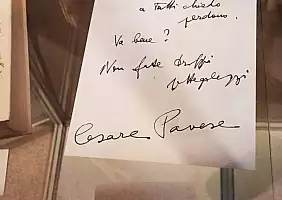 a tutti chiedo
perdono.
Va bene?
Non fate troppi
pettegolezzi
Cesare Pavese